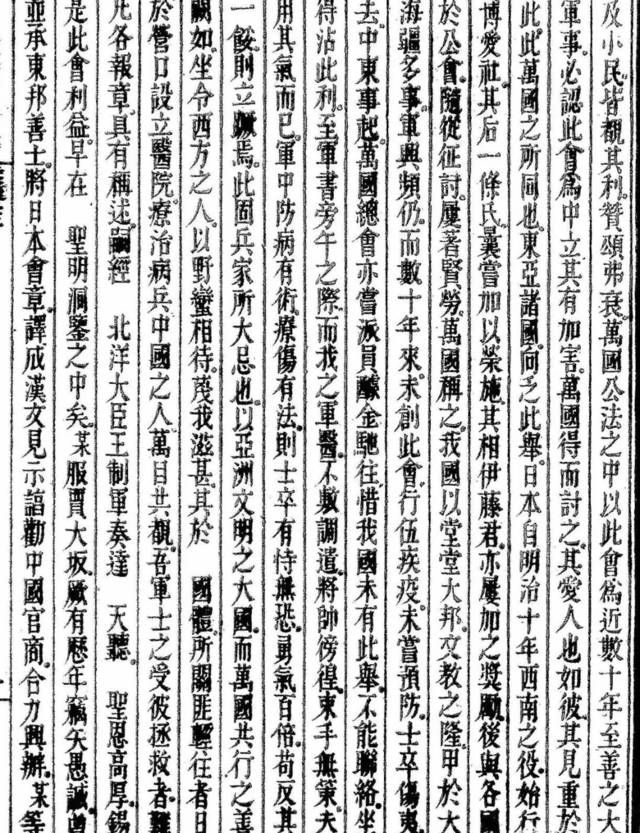 及小民皆覩其利贊頌弗衰萬國公法之中以此會爲近數十年至善之大
軍事必認此會爲中立其有加害萬國得而討之其愛人也如彼其見重於
此此萬國之所同也東亞諸國向乏此舉日本自明治十年西南之役始行
博愛社其后一條氏曩嘗加以榮施其相伊藤君亦屢加之獎勵後與各國
於公會隨從征討屢著賢勞萬國稱之我國以堂堂大邦文教之隆甲於大
海疆多事軍興頻仍而數十年來未創此會行伍疾疫未嘗預防士卒傷夷
去中東事起萬國總會亦嘗派員醵金馳往惜我國未有此舉不能聯絡坐
得沾此利至軍書旁午之際而我之軍醫不敷調遣將帥傍徨束手無策夫
用其氣而已軍中防病有術療傷有法則士卒有恃無恐勇氣百倍苟反其
一餒則立蹶焉此固兵家所大忌也以亞洲文明之大國而萬國共行之善
闕如坐令西方之人以野蠻相待蔑我滋甚其於 國體所關匪輕往者日
於營口設立醫院療治病兵中國之人萬目共覩吾軍士之受彼拯救者難
凡各報章具有稱述嗣經 北洋大臣王制軍奏達 天聽 聖恩高厚錫
是此會利益早在 聖明洞鑒之中矣某服賈大坂厥有歷年竊矢愚誠
並承東邦善士將日本會章譯成漢文見示諄勸中國官商合力興辦某等